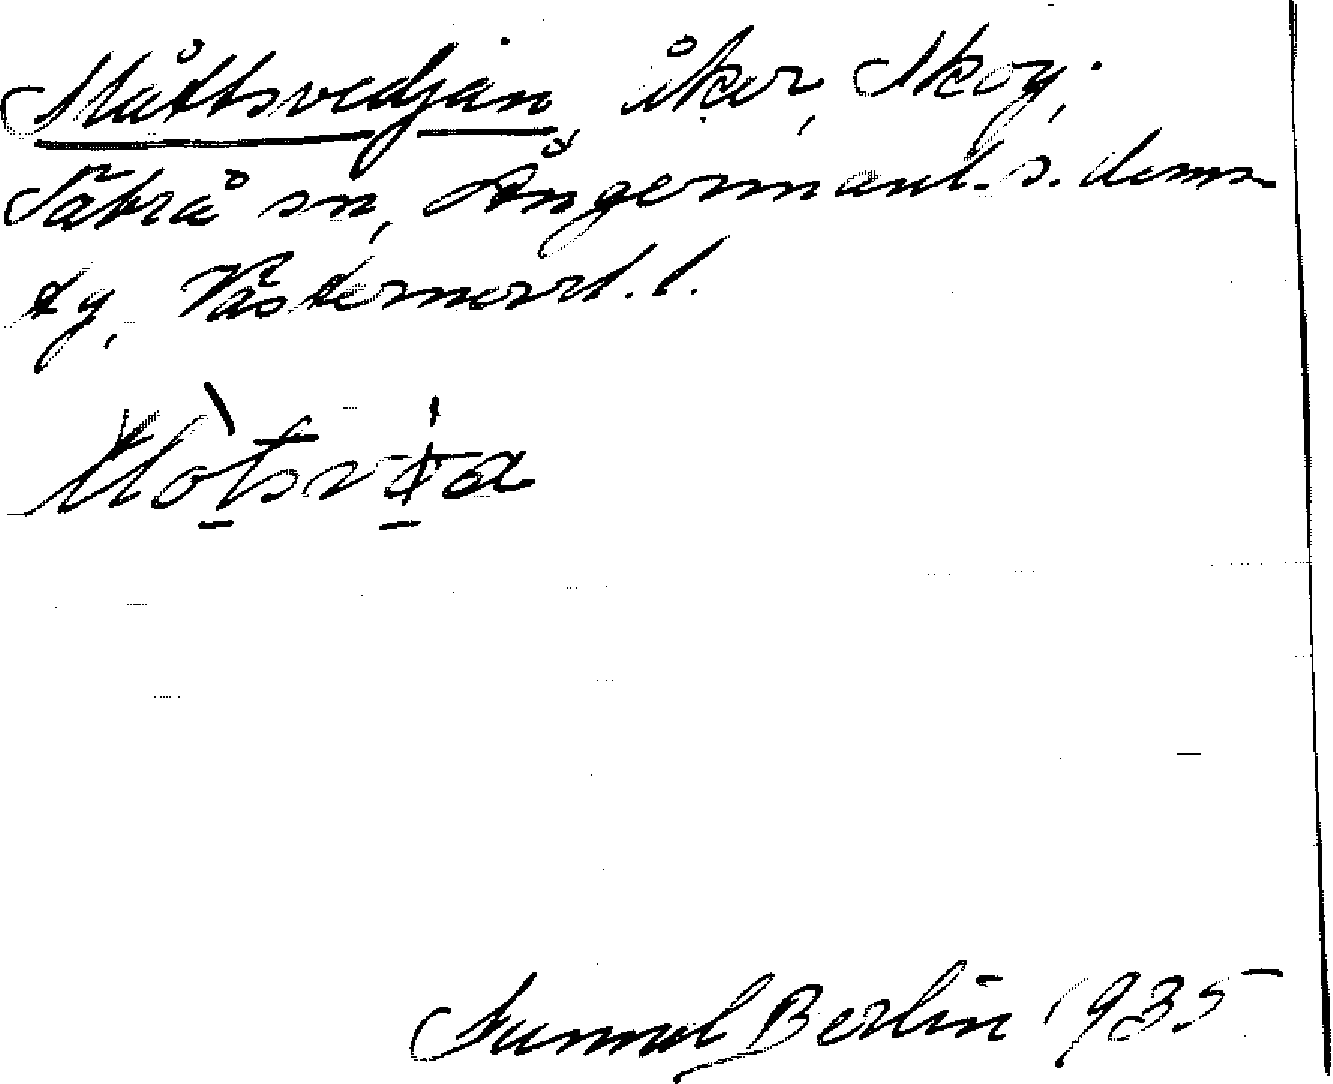 Slåttsvedjan åker, skog.
Säbrå sn, Ångermanl. s. doms-
ag, Västernorrl. l.
Gunnel Berlin 1935